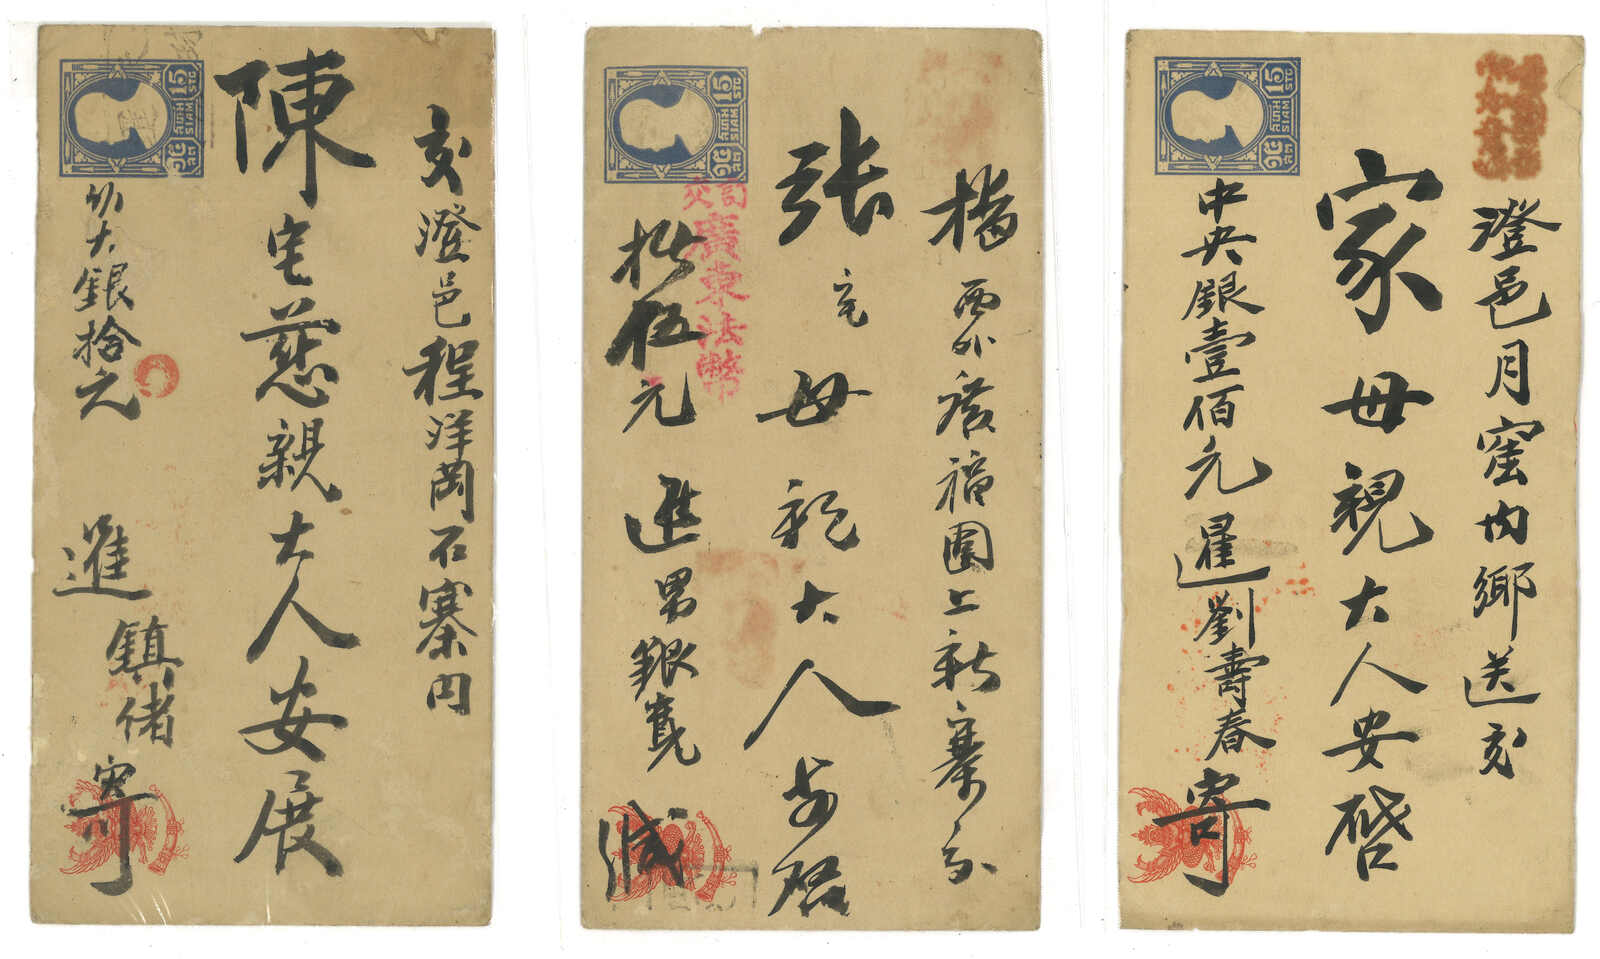 交澄邑程洋岡石寨内
陳宅慈親大人安展
外大銀拾元
進
鎮储寄
15
STG
สยาม
SIAM
๑๕
สต
後福圍上新寨
張宅母親大人安啓
拾伍元
進男銀寬緘
司交
廣東法幣
15
STG
สยาม
SIAM
๑๕
สต
澄邑月窖内鄉送交
家母親大人安啓
中央銀壹佰元暹劉壽春寄
15
STG
สยาม
SIAM
๑๕
สต